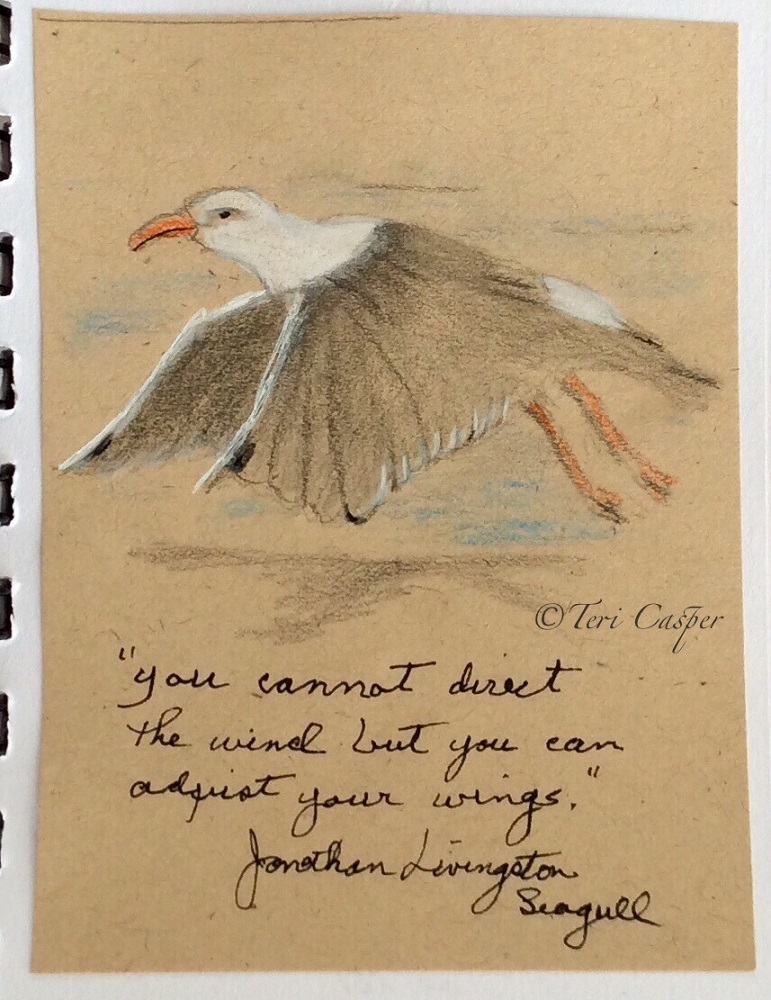 ©Teri Casper
"you cannot direct
the wind but you can
adjust your wings."
Jonathan Livingston
Seagull